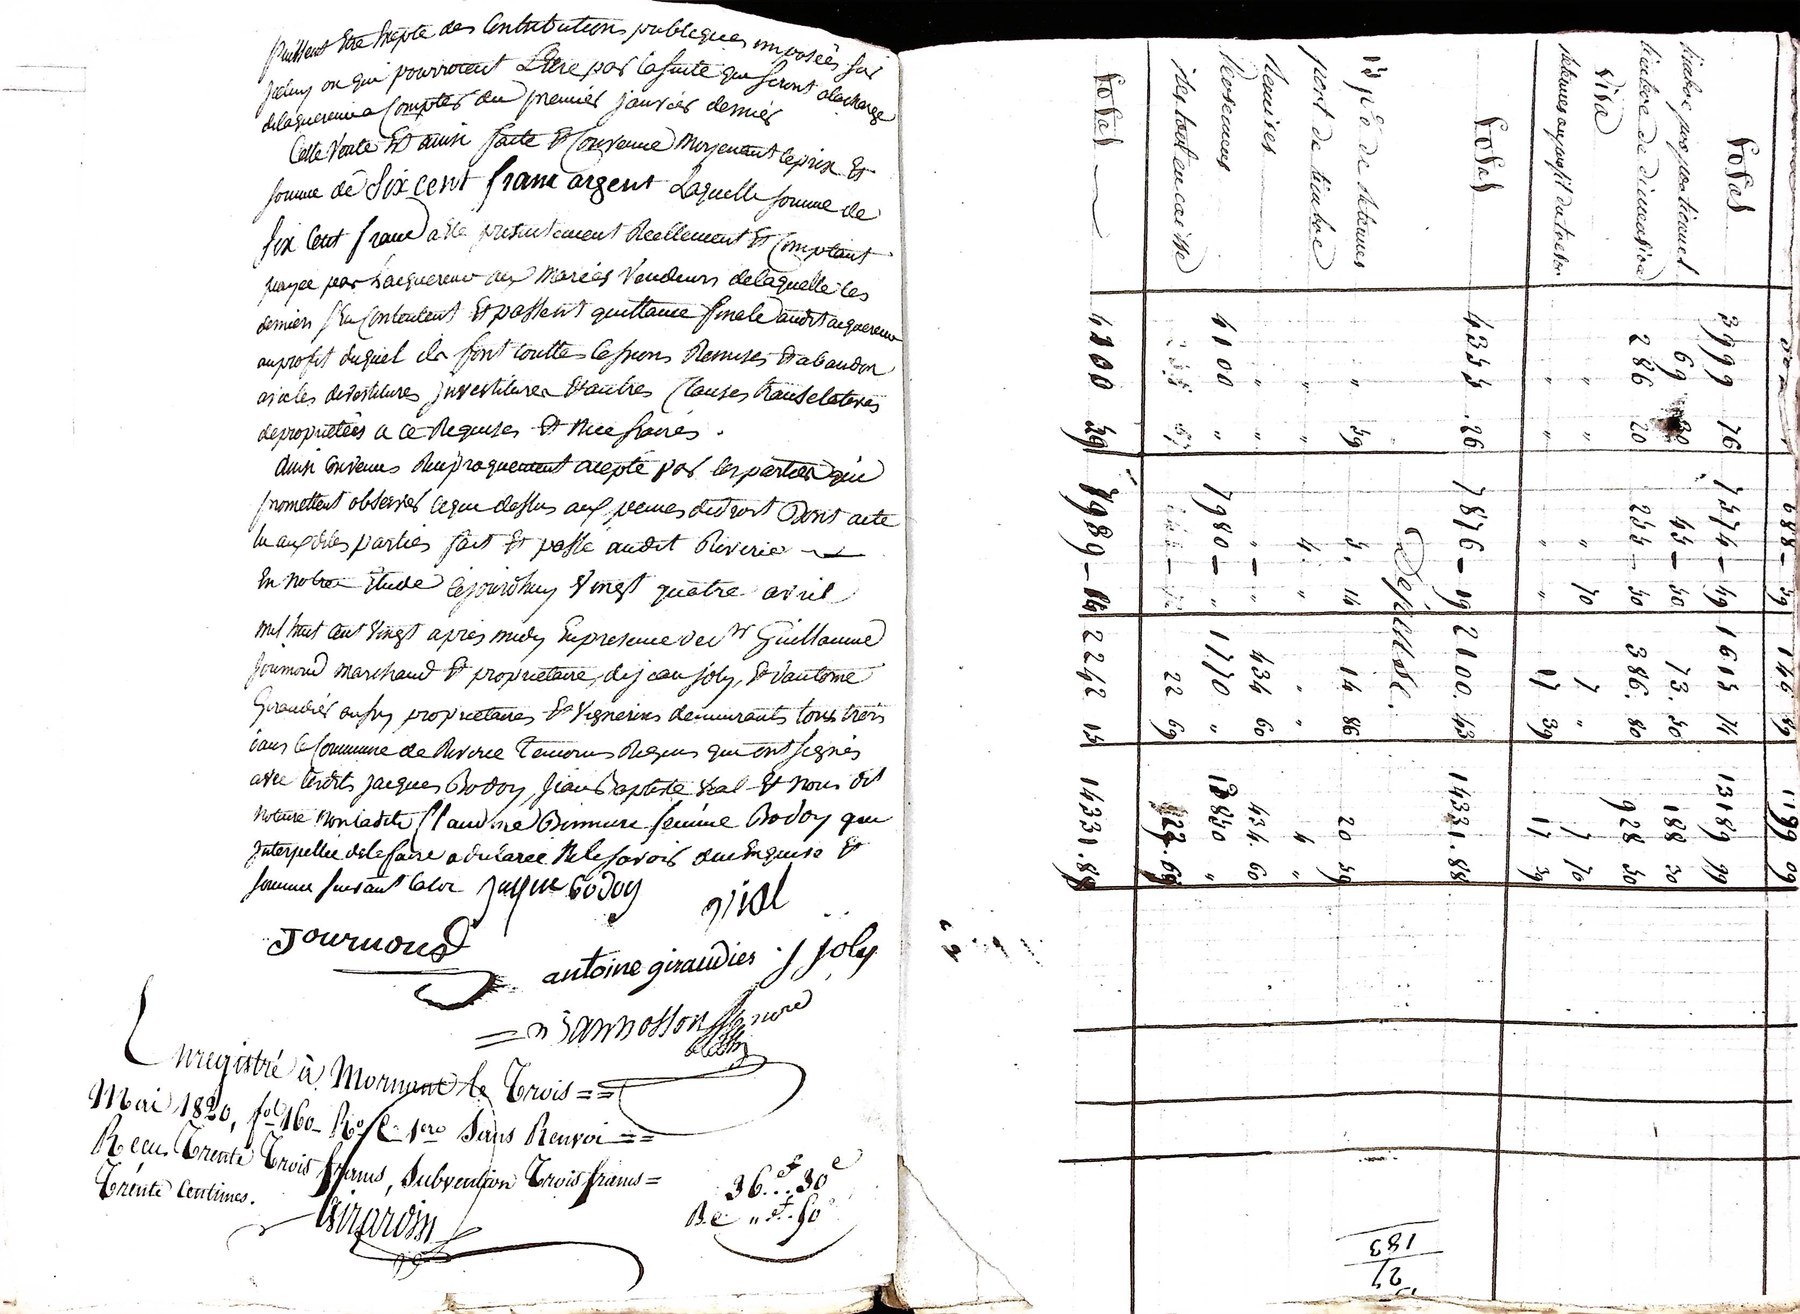 puissent être Excepté des Contributions publiques imposées sur
Jceluy ou qui pourroient L'Etre par la suite qui seront a la charge
de laquereur a Compter du premier janvier dernier
Cette vente Est ainsi faite Et Convenue Moyenant le prix Et
somme de Six cent franc argent Laquelle somme de
six Cent franc a Eté presentement Reellement Et Comptant
payée par L'acquereur aux mariés Vendeurs de laquelle les
derniers s'En Contentent Et passent quittance finale audit acquereur
au profit duquel ils font touttes Cessions Remises Et abandon
avec les devestitures Investitures Et autres Clauses translatives
de proprietés a ce Requises Et Necessaires .
Ainsi Convenus Reciproquement acepté par les parties qui
promettent observer ce que dessus aux peines de droit Dont acte
lu auxdites parties fait Et passé audit Riverie
En notre Etude Cejourdhuy Vingt quatre avril
mil huit cent vingt après midy En presence de sr Guillaume
Journoud marchand Et proprietaire, de jean joly, Et d'antoine
Giraudier aussy proprietaires Et Vignerons demeurants tous trois
dans la Commune de Riverie Temoins Requis qui ont signés
avec lesdits jacques Bodoy, Jean Baptiste Vial Et Nous dit
Notaire Non ladite Claudine femme Bodoy qui
Interpellée de le faire a declarée Ne le savoir de ce Enquise Et
somme suivant la loi jaque bodoy
vial
Journoud
antoine giraudier j joly
Enregistré à Mornant le Trois ==
Mai 1820, fol 160 Ro C. 1ere Sans Renvoi ==
Recu Trente Trois francs, Subvention Trois francs =
Trente Centimes.
36.f..30c
Girardin
B.c. „ f. 50c
Total 3999 76 7574 - 49 1615 71 13189 99
timbre proportionnel 69 30 45 - 50 73. 50 188 30
timbre de dimension 286 20 255 - 50 386. 80 928 50
Visa „ „ „ 70 7 „ 7 70
„ „ „ „ 17 39 17 39
Total 4355 .26 7876 - 19 2100. 43 14331. 88
Dépense.
„ 59 5. 14 14 86 20 59
port de timbre „ „ 4. „ „ 4 „
Remises „ „ „ - „ 434 60 434. 60
Versemens 4100 „ 7980 - „ 1770 „ 13850 „
reste en caisse 22 69
Total 2242 15 14331. 88
183
27